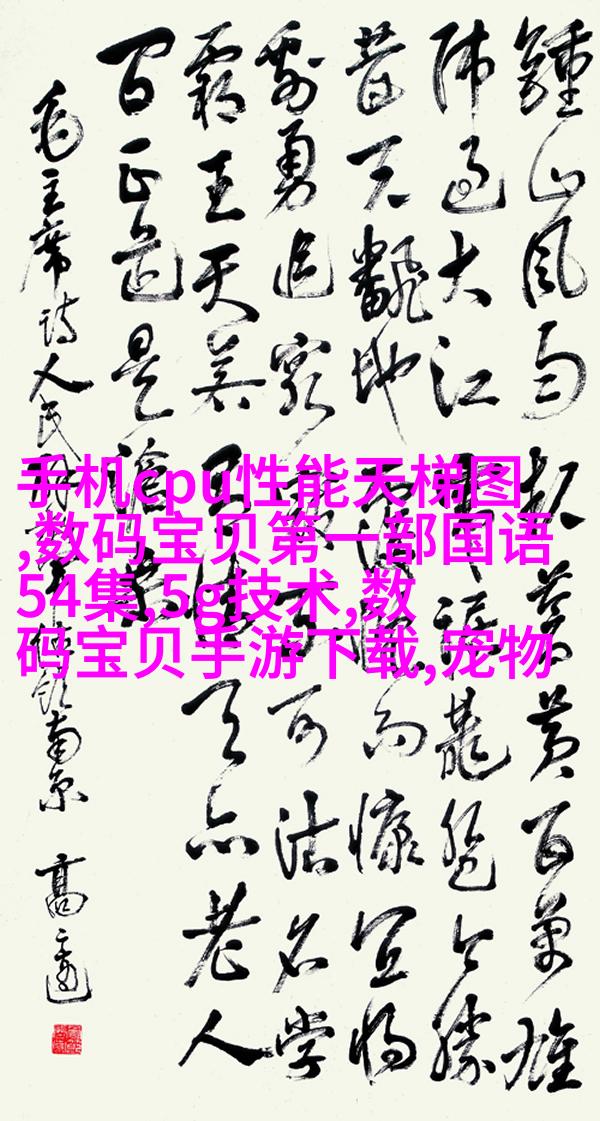 鍾山風雨起蒼黃百萬雄
師過大江虎踞龍盤今勝
昔天翻地覆慨而慷宜將
剩勇追窮寇不可沽名學
霸王天若有情天亦老人
間正道是滄桑
毛主席詩人民解放軍佔領南京 高
手机cpu性能天梯图
,数码宝贝第一部国语
54集,5g技术,数
码宝贝手游下载,宠物